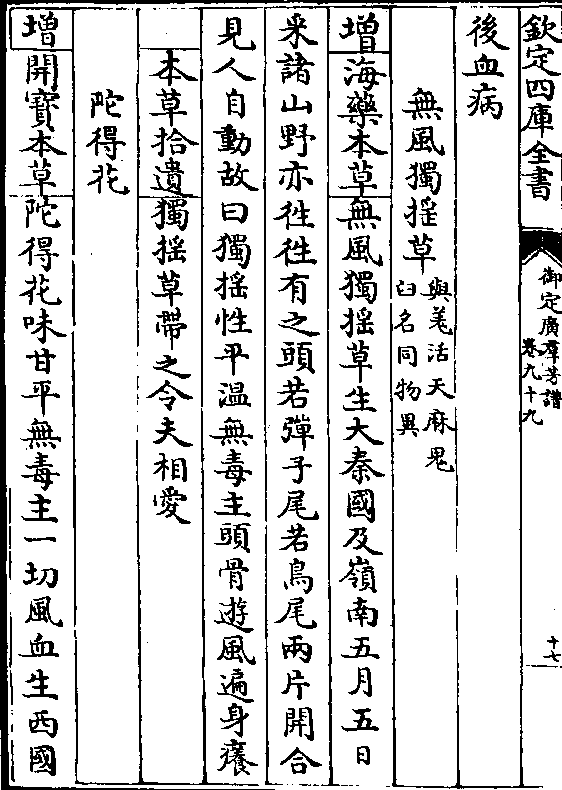 欽定四庫全書
御定廣羣芳譜
卷九十九
十七
後血病
無風獨揺草與羗活天麻鬼
臼名同物異
增海藥本草無風獨揺草生大秦國及嶺南五月五日
采諸山野亦徃徃有之頭若彈子尾若鳥尾兩片開合
見人自動故曰獨揺性平温無毒主頭骨遊風遍身癢
本草拾遺獨揺草帶之令夫相愛
陀得花
增開寶本草陀得花味甘平無毒主一切風血生西國